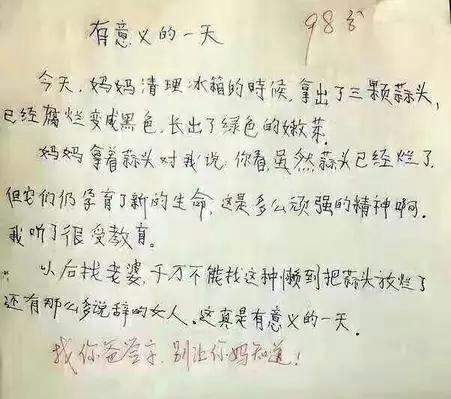 有意义的一天
98分
今天，妈妈清理冰箱的時候，拿出了三颗蒜头，
已经腐烂变成黑色，长出了绿色的嫩芽。
妈妈拿着蒜头对我说：你看，虽然蒜头已经烂了，
但它们仍孕育了新的生命，这是多么顽强的精神啊。
我听了很受教育。
以后找老婆，千万不能找这种懒到把蒜头放烂了
还有那么多说辞的女人。这真是有意义的一天。
找你爸签字，别让你妈知道！